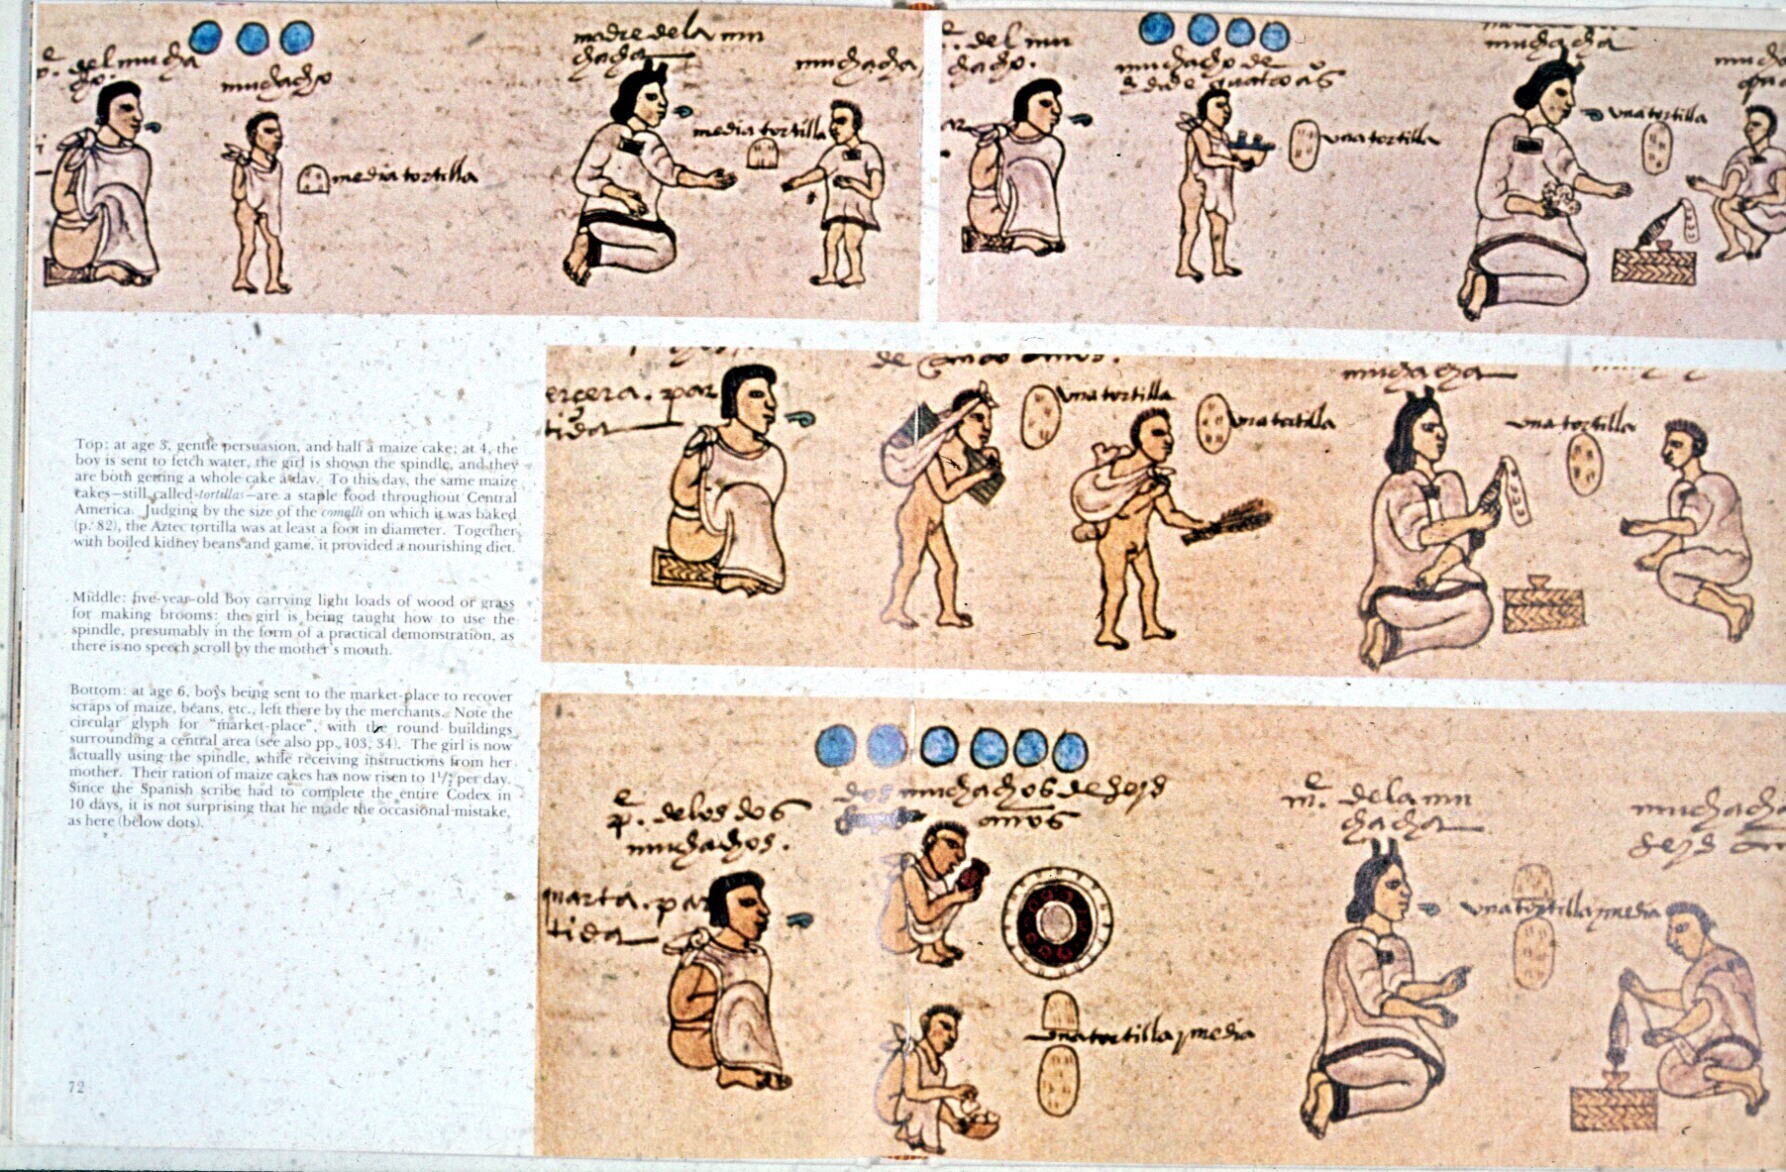 p. del mucha
cho.
muchacho
media tortilla
madre de la mu
chacha
muchacha
media tortilla
p. del mu
chacho.
muchacho de
edad de quatro aõs
una tortilla
muchacha
una tortilla
Top: at age 3, gentle persuasion, and half a maize cake; at 4, the
boy is sent to fetch water, the girl is shown the spindle, and they
are both getting a whole cake a day. To this day, the same maize
cakes—still called tortillas—are a staple food throughout Central
America. Judging by the size of the comalli on which it was baked
(p. 82), the Aztec tortilla was at least a foot in diameter. Together
with boiled kidney beans and game, it provided a nourishing diet.
Middle: five-year-old Boy carrying light loads of wood or grass
for making brooms: the girl is being taught how to use the
spindle, presumably in the form of a practical demonstration, as
there is no speech scroll by the mother's mouth.
Bottom: at age 6, boys being sent to the market-place to recover
scraps of maize, beans, etc., left there by the merchants. Note the
circular glyph for "market-place", with the round buildings
surrounding a central area (see also pp. 103, 34). The girl is now
actually using the spindle, while receiving instructions from her
mother. Their ration of maize cakes has now risen to 1½ per day.
Since the Spanish scribe had to complete the entire Codex in
10 days, it is not surprising that he made the occasional mistake,
as here (below dots).
72
ercera. par
tida
de cinco años.
una tortilla
una tortilla
muchacha
una tortilla
p. de los dos
muchachos.
quarta. par
tida
dos muchachos de seys
años
una tortilla y media
m. de la mu
chacha
una tortilla y media
muchacha
seys